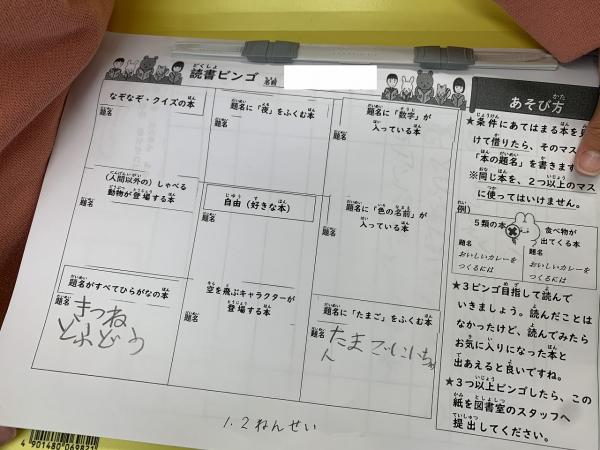 読書ビンゴ
名前
なぞなぞ・クイズの本
題名
題名に「夜」をふくむ本
題名
題名に「数字」が
入っている本
題名
(人間以外の)しゃべる
動物が登場する本
題名
自由(好きな本)
題名
題名に「色の名前」が
入っている本
題名
題名がすべてひらがなの本
題名
きつね
どふどう
空を飛ぶキャラクターが
登場する本
題名
題名に「たまご」をふくむ本
題名
たまごにいちゃ
ん
1.2ねんせい
あそび方
★条件にあてはまる本を
けて借りたら、そのマス
「本の題名」を書きます
※同じ本を、2つ以上のマス
に使ってはいけません。
例)
5類の本
題名
おいしいカレーを
つくるには
食べ物が
出てくる本
題名
おいしいカレーを
つくるには
★3ビンゴ目指して読んで
いきましょう。読んだことは
なかったけど、読んでみたら
お気に入りになった本と
出あえると良いですね。
★3つ以上ビンゴしたら、この
紙を図書室のスタッフへ
提出してください。
4 901480 069821